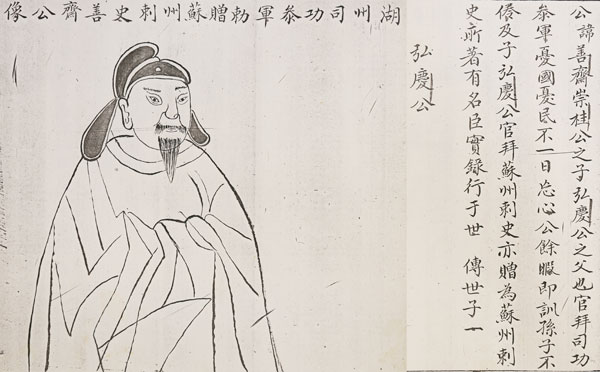 湖州司功叅軍勅贈蘇州刺史善齊公像
公諱善齋崇桂公之子弘慶公之父也官拜司功
叅軍憂國憂民不一日忘心公餘暇即訓孫子不
倦及子弘慶公官拜蘇州刺史亦贈為蘇州刺
史所著有名臣實錄行于世 傳世子一
弘慶公